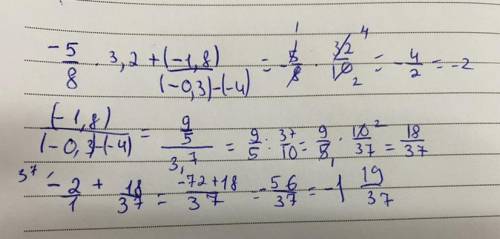 -5/8 · 3,2 + (-1,8)/(-0,3)-(-4) = -5/8 · 32/10 = -4/2 = -2
(-1,8)/(-0,3)-(-4) = 9/5/3,7 = 9/5 : 37/10 = 9/5 · 10/37 = 18/37
-2/1 + 18/37 = -72+18/37 = -56/37 = -1 19/37